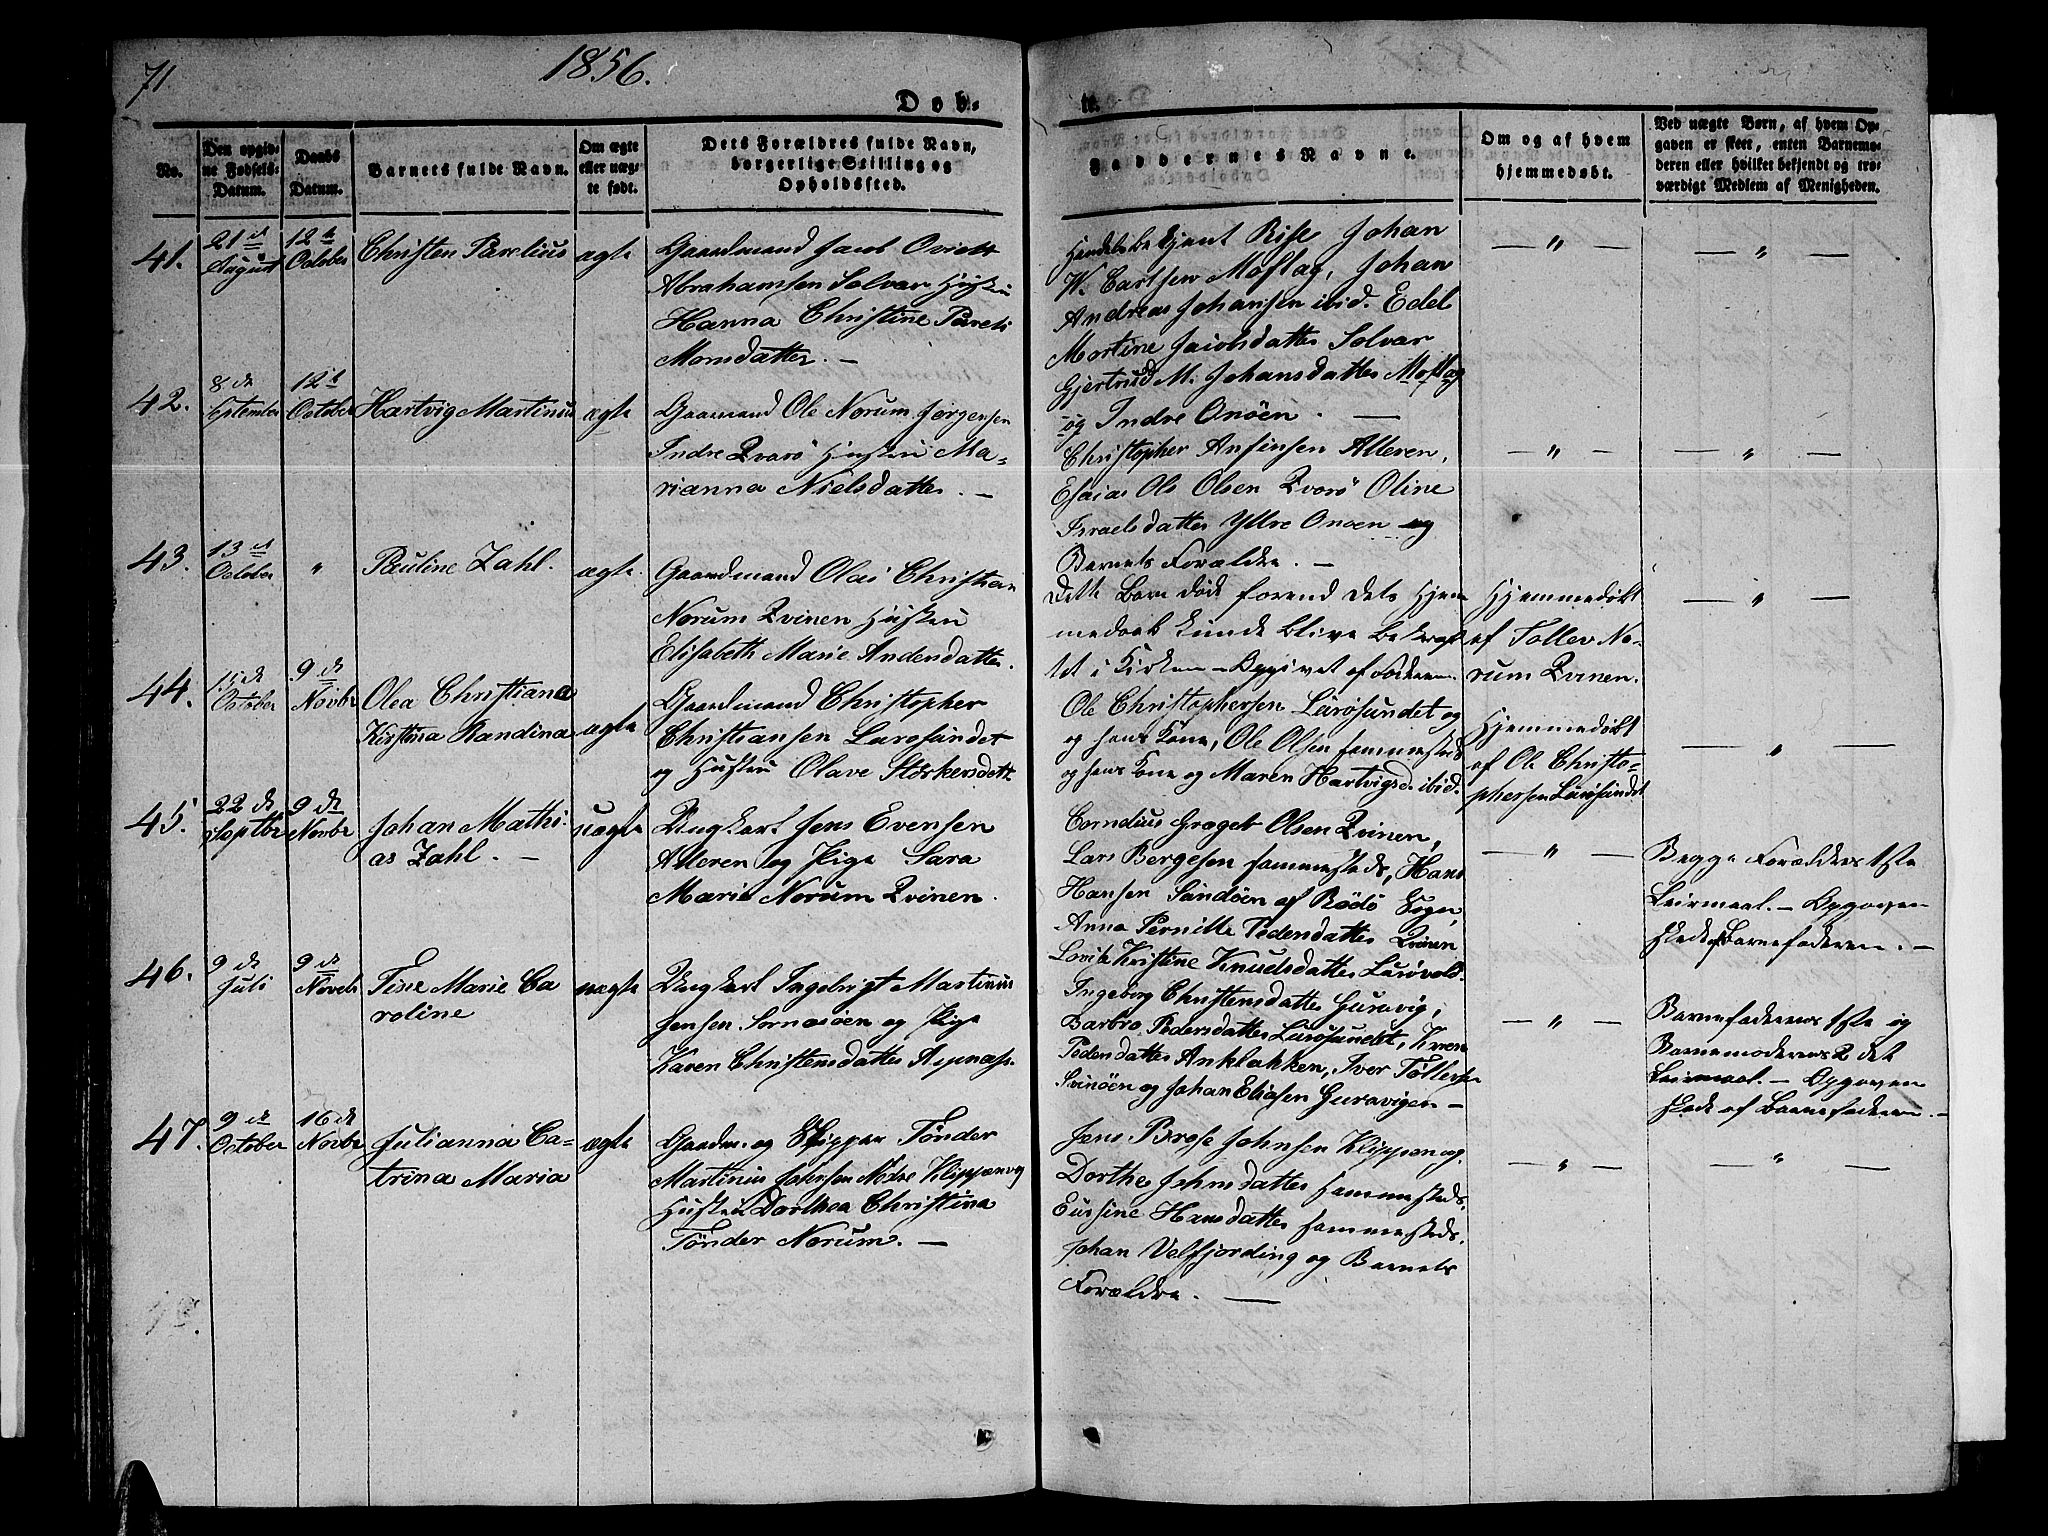 71.
1856.
Døb-
te.
No.
Den opgiv-
ne Fødsels-
Datum.
Daabs
Datum.
Barnets fulde Navn.
Om ægte
eller uæg-
te født.
Dets Forældres fulde Navn,
borgerlige Stilling og
Opholdssted.
Faddernes Navne.
Om og af hvem
hjemmedøbt.
Ved uægte Børn, af hvem Op-
gaven er skeet, enten Barnemo-
deren eller hvilket bekjendt og tro-
værdigt Medlem af Menigheden.
41.
21de
August
12te
October
Christen Parelius
ægte
Gaardmand Jacob
Abrahamsen Solvær Hustru
Hanna Christine Pareli
Monsdatter. —
Johan
W. Carlsen Moflag, Johan
Andreas Johansen ibid. Edel
Martine Jacobsdatter Solvær
Gjertrud M. Johansdatter Moflag
og Indre Onøen. —
— " —
— " —
42.
8de
September
12te
October
Hartvig Martinus
ægte
Gaarmand Ole Norum Jørgensen
Indre Qvarø Hustru Ma-
rianna Nielsdatter. —
Christopher Ansinsen Alteren,
Esaias Ols Olsen Qvarø Oline
Israelsdatter Yttre Onøen og
Barnets Forældre. —
— " —
— " —
43.
13de
October
"
Pauline Zahl.
ægte.
Gaardmand Olai Christian
Norum Qvinen Hustru
Elisabeth Marie Andersdatter.
Dette Barn døde forend dets Hjem
medaab kunde blive bekræf
tet i Kirken — Opgivet af Faderen
Hjemmedøbt
af Tollev No-
rum Qvinen.
— " —
44.
15de
October
9de
Novbr
Olea Christiana
Kirstina Randina
ægte
Gaardmand Christopher
Christiansen Lurøsundet
og Hustru Olave Størkersdatt.
Ole Christophersen Lurøsundet og
og hans Kone, Ole Olsen sammesteds
og hans Kone og Maren Hartvigsd. ibid.
Hjemmedøbt
af Ole Christo-
phersen Lurøsundet
— " —
45.
22de
Septbr
9de
Novbr
Johan Mathi-
as Zahl. —
uægte
Ungkarl Jens Evensen
Alteren og Pige Sara
Marie Norum Qvinen.
Cornelius Greger Olsen Qvinen,
Lars Bergesen sammesteds, Hans
Hansen Sandøen af Rødø Sogn,
Anna Pernille Pedersdatter Qvinen
Lovise Kristine Knudsdatter Lurøvold.
— " —
Begge Forældres 1ste
Leirmaal. — Opgaven
skede af Barnefaderen. —
46.
9de
Juli
9de
Novebr
Tine Marie Ca
roline
uægte
Ungkarl Ingebrigt Martinus
Jensen Sørnæsøen og Pige
Karen Christensdatter
Ingeborg Christensdatter Guravig,
Barbro Pedersdatter Lurøsundet, Karen
Pedersdatter Anklakken, Iver Tollefsen
Svinøen og Johan Eliasen Guravigen —
— " —
Barnefaderens 1ste og
Barnemoderens 2det
Leirmaal. — Opgaven
skede af Barnefaderen. —
47.
9de
October
16de
Novbr
Julianna Ca-
trina Maria
ægte
Gaardm. og Skipper Tønder
Martinus Johnsen Nedre Klippen og
Hustru Dorthea Christina
Tønder Norum. —
Jens Brose Johnsen Klippen og
Dorthe Johnsdatter sammesteds,
Eusine Hansdatter sammesteds.
Johan Velfjording og Barnets
Forældre. —
— " —
— " —